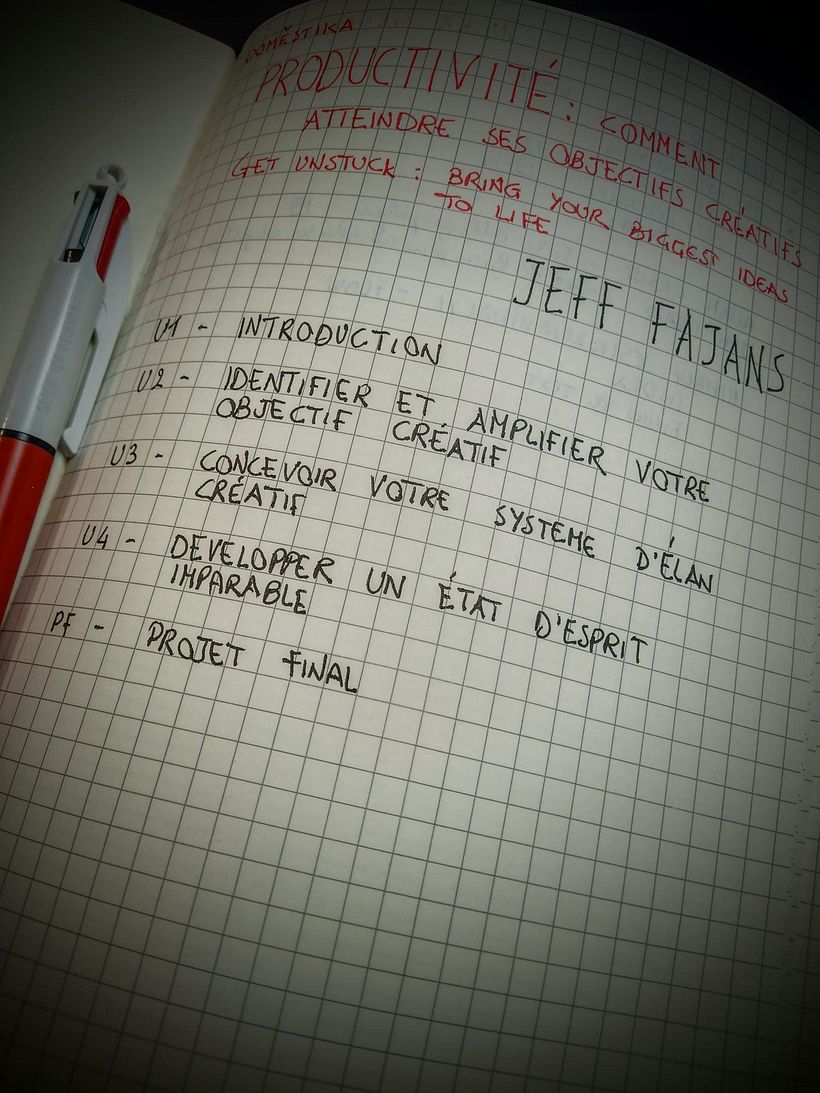 DOMĔSTIKA
PRODUCTIVITÉ : COMMENT
ATTEINDRE SES OBJECTIFS CRÉATIFS
GET UNSTUCK : BRING YOUR BIGGEST IDEAS
TO LIFE
JEFF FAJANS
U1 - INTRODUCTION
U2 - IDENTIFIER ET AMPLIFIER VOTRE
OBJECTIF CRÉATIF
U3 - CONCEVOIR VOTRE SYSTEME D'ÉLAN
CRÉATIF
U4 - DEVELOPPER UN ÉTAT D'ESPRIT
IMPARABLE
PF - PROJET FINAL